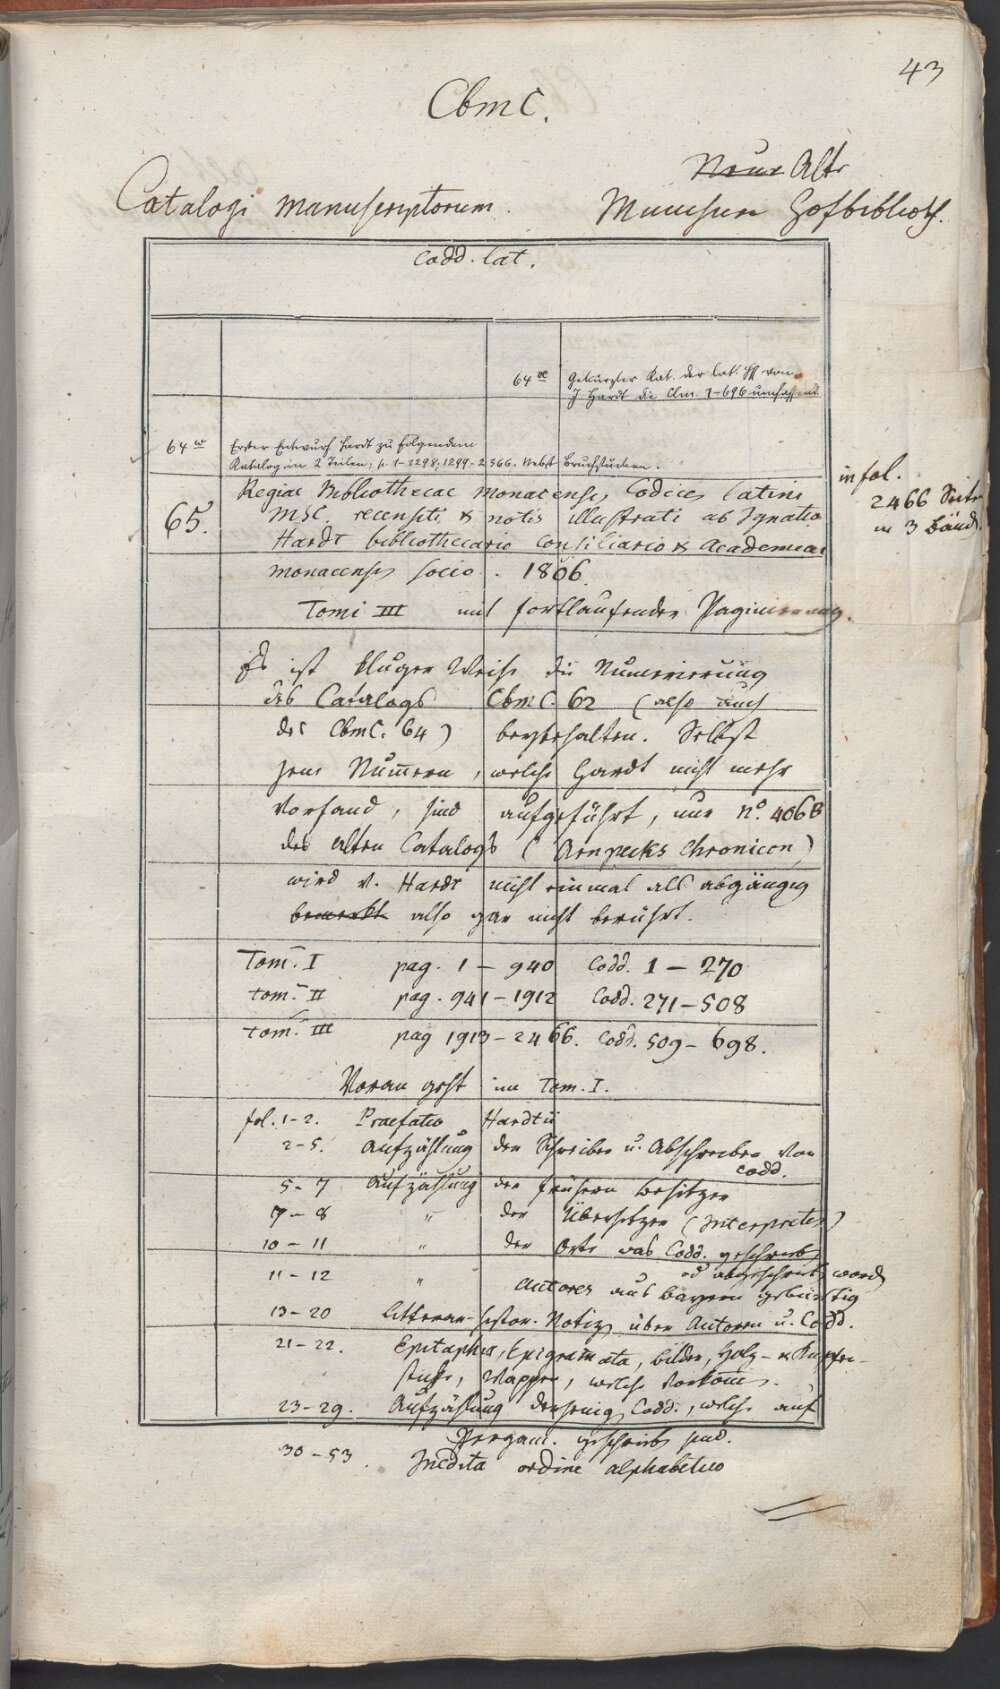 43
CbmC.
Neue Alte
Catalogi manuscriptorum. Münchner Hofbiblioth.
Codd. lat.
64ae Gekürzter Kat. der lat. Hss von
J Hardt die Clm. 1-696 umfassend.
64w Erster Entwurf Hardt zu folgendem
Katalog in 2 Teilen; p. 1-2298; 1299-2366. Nebst Bruchstücken.
Regiae Bibliothecae Monacensis Codices Latini
65. MSC. recensiti & notis illustrati ab Ignatio
Hardt bibliothecario consiliario & Academiae
monacensis socio. 1806.
in fol.
2466 Seiten
in 3 Bänd.
Tomi III mit fortlaufender Paginierung.
Es ist kluger Weise die Numerierung
des Catalogs CbmC. 62 (also auch
des CbmC. 64) beybehalten. Selbst
jene Num̄ern, welche Hardt nicht mehr
vorfand, sind aufgeführt, nur No. 406B
des alten Catalogs (Arnpecks Chronicon)
wird v. Hardt nicht einmal als abgängig
bemerkt also gar nicht berührt.
Tom. I pag. 1 - 940 Codd. 1 - 270
tom. II pag. 941-1912 Codd. 271-508
tom. III pag 1913-2466. Codd. 509-698.
Voran geht im Tom. I.
fol. 1-2. Praefatio Hardtii
2-5. Aufzählung der Schreiber u. Abschreiber von
Codd.
5-7 Aufzählung der frühern Besitzer
7-8 " der Übersetzer (Interpretes)
10-11 " der Orte was Codd. geschrieb
od abgeschrieb word
11-12 " Autores aus Bayern gebürtig
13-20 litterar-histor. Notiz über Autoren u. Codd.
21-22. Epitaphia, Epigramata, Bilder, Holz- & Kupfer-
stiche, Wappen, welche vorkom̄en.
23-29. Aufzählung derjenig Codd., welche auf
Pergam. geschrieb sind.
30-53. Inedita ordine alphabetico